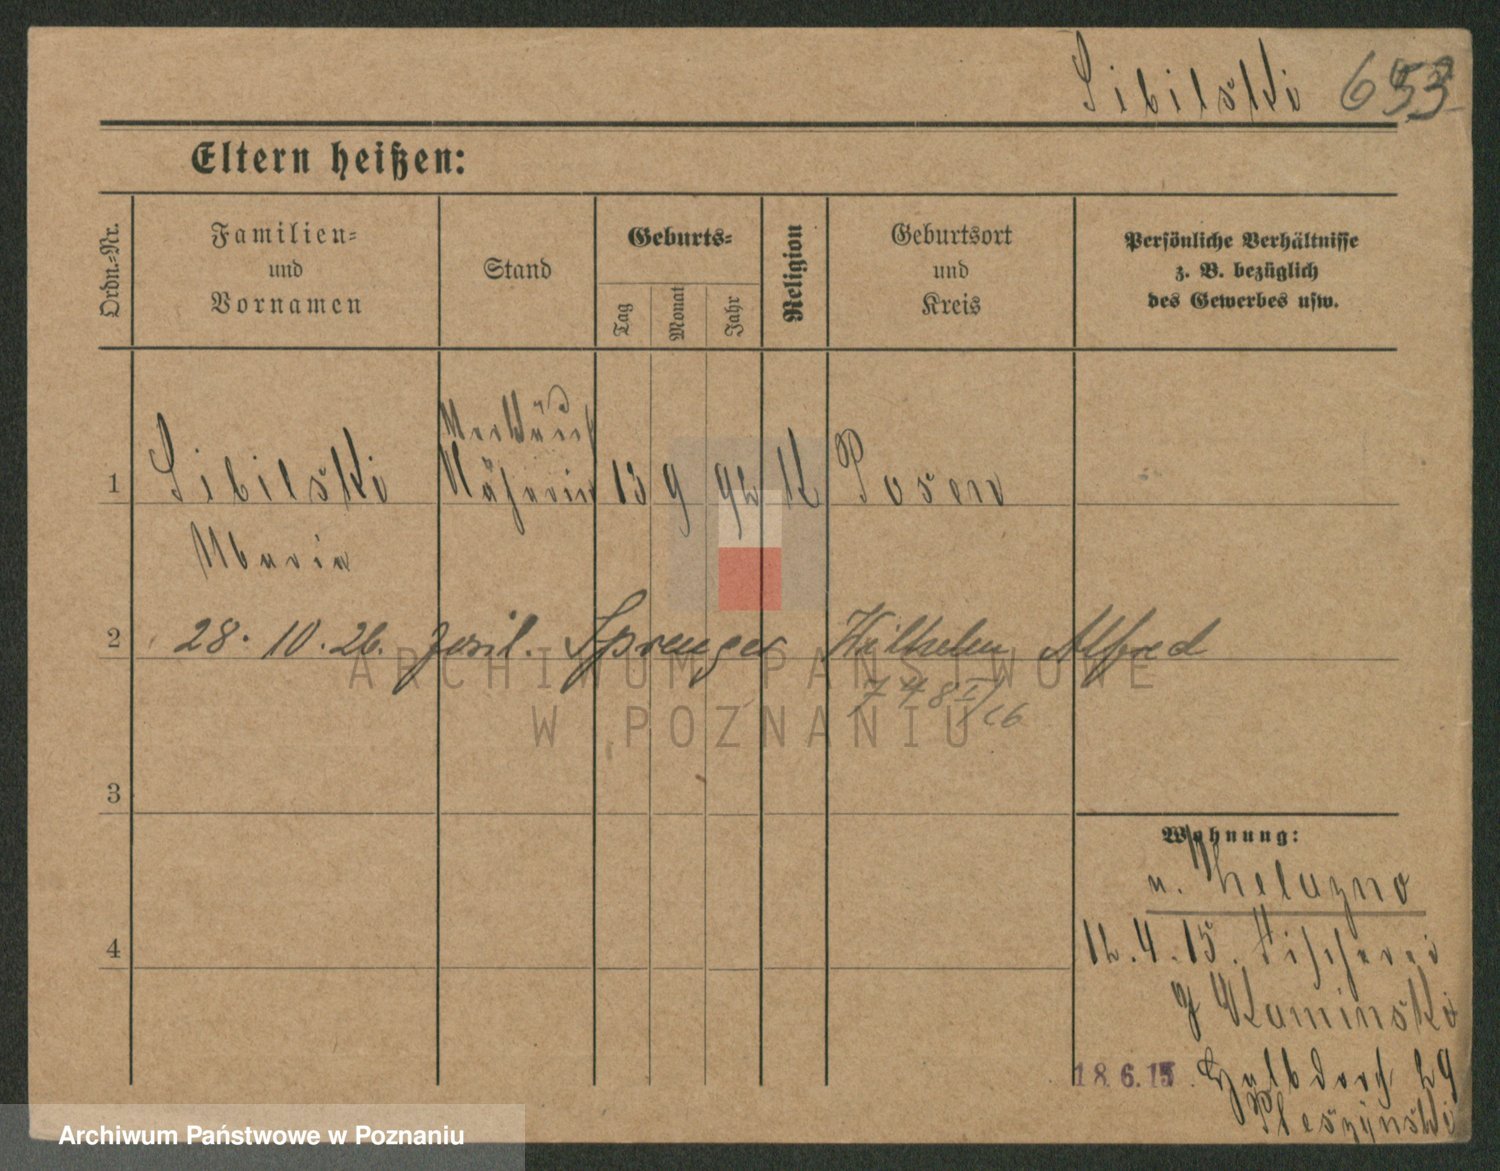 Sibilski 653
Eltern heißen:
Ordn.-Nr.
Familien-
und
Vornamen
Stand
Geburts-
Tag
Monat
Jahr
Religion
Geburtsort
und
Kreis
Persönliche Verhältnisse
z. B. bezüglich
des Gewerbes usw.
1 Sibilski Näherin 13 9 92 K Posen
Maria
2 28. 10. 26. Sprenger Wilhelm Alfred
748 I/26
3
4
Wohnung:
v. Chelazno
12. 4. 15. Fischerei
7 Kaminski
18. 6. 15. Halbdorf 29
Pleszynski
ARCHIWUM PAŃSTWOWE
W POZNANIU
Archiwum Państwowe w Poznaniu